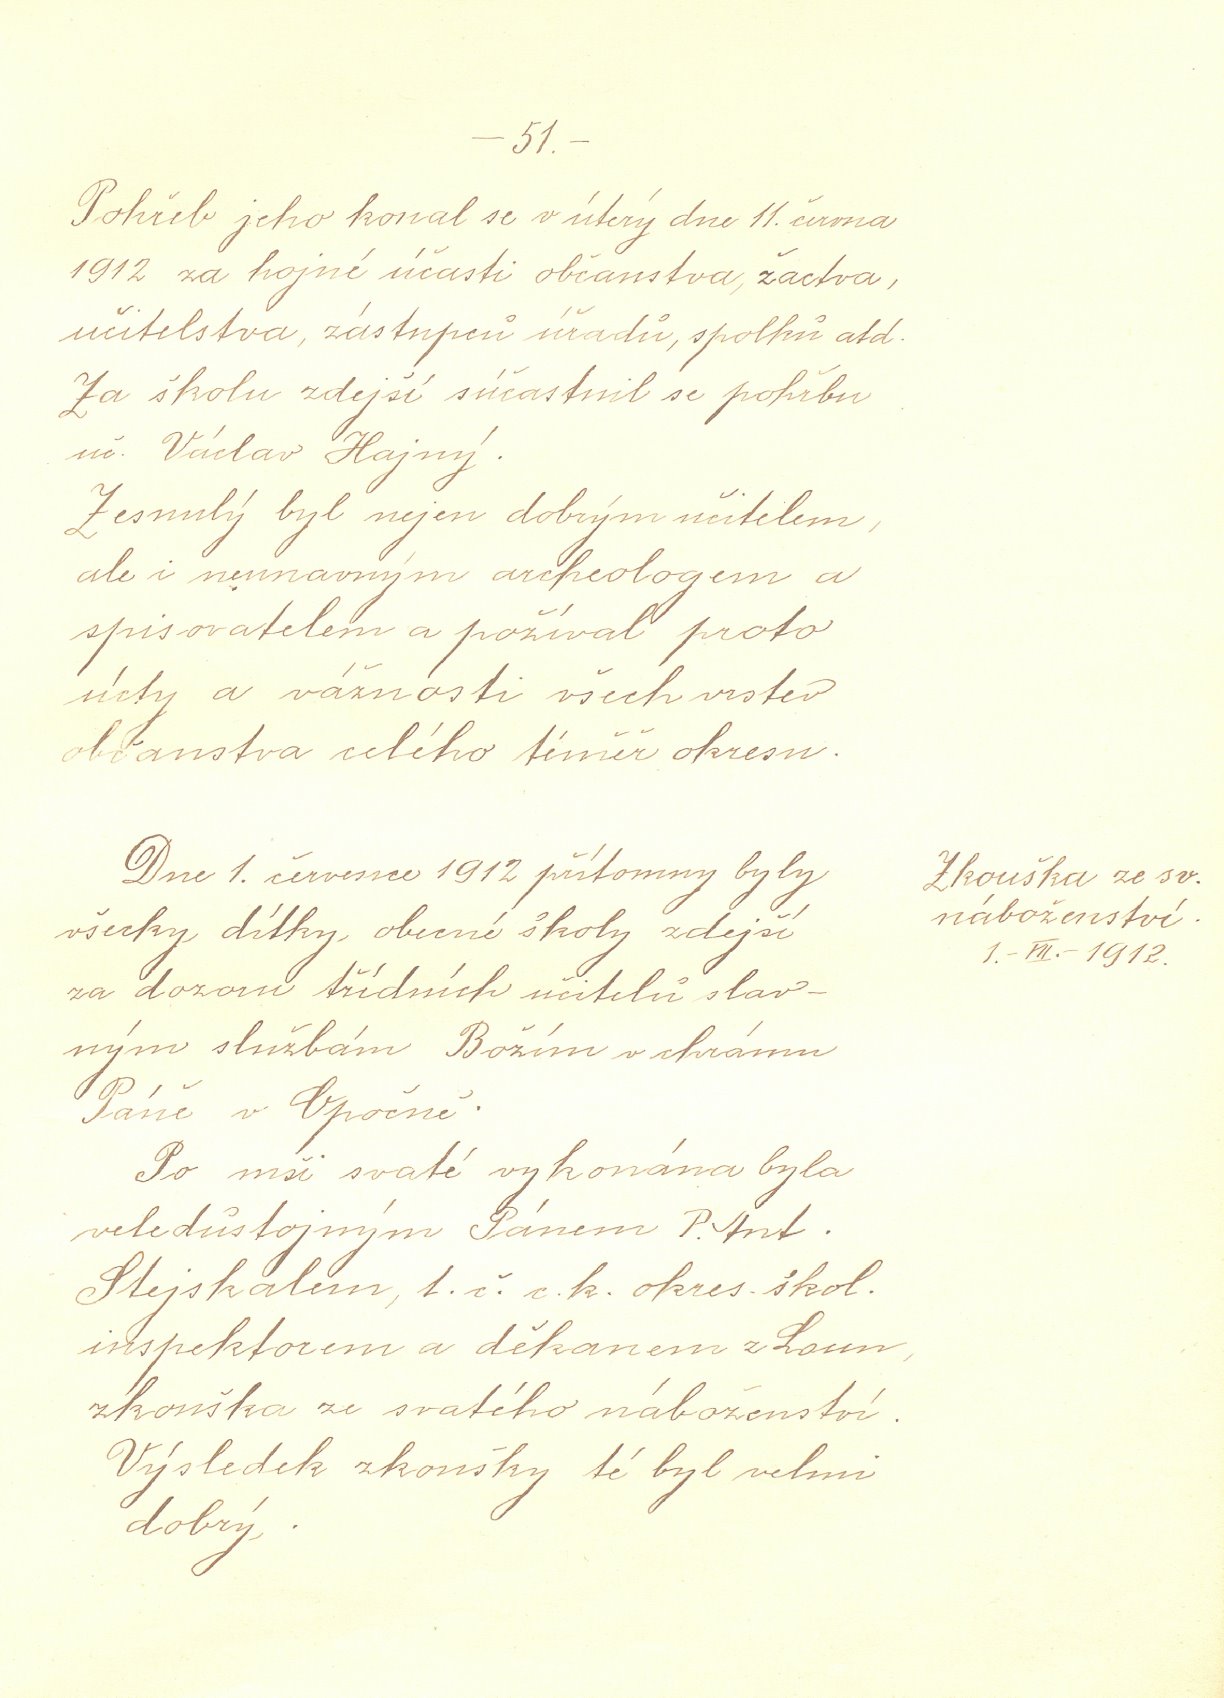 — 51. —
Pohřeb jeho konal se v úterý dne 11. června
1912 za hojné účasti občanstva, žactva,
učitelstva, zástupců úřadů, spolků atd.
Za školu zdejší súčastnil se pohřbu
uč. Václav Hajný.
Zesnulý byl nejen dobrým učitelem,
ale i neunavným archeologem a
spisovatelem a požíval proto
úcty a vážnosti všech vrstev
občanstva celého téměř okresu.
Dne 1. července 1912 přítomny byly
všecky dítky obecné školy zdejší
za dozoru třídních učitelů slav-
ným službám Božím v chrámu
Páně v Opočně.
Zkouška ze sv.
náboženství.
1.-VII.-1912.
Po mši svaté vykonána byla
veledůstojným Pánem P. Ant.
Stejskalem, t. č. c. k. okres. škol.
inspektorem a děkanem z Loun,
zkouška ze svatého náboženství.
Výsledek zkoušky té byl velmi
dobrý.